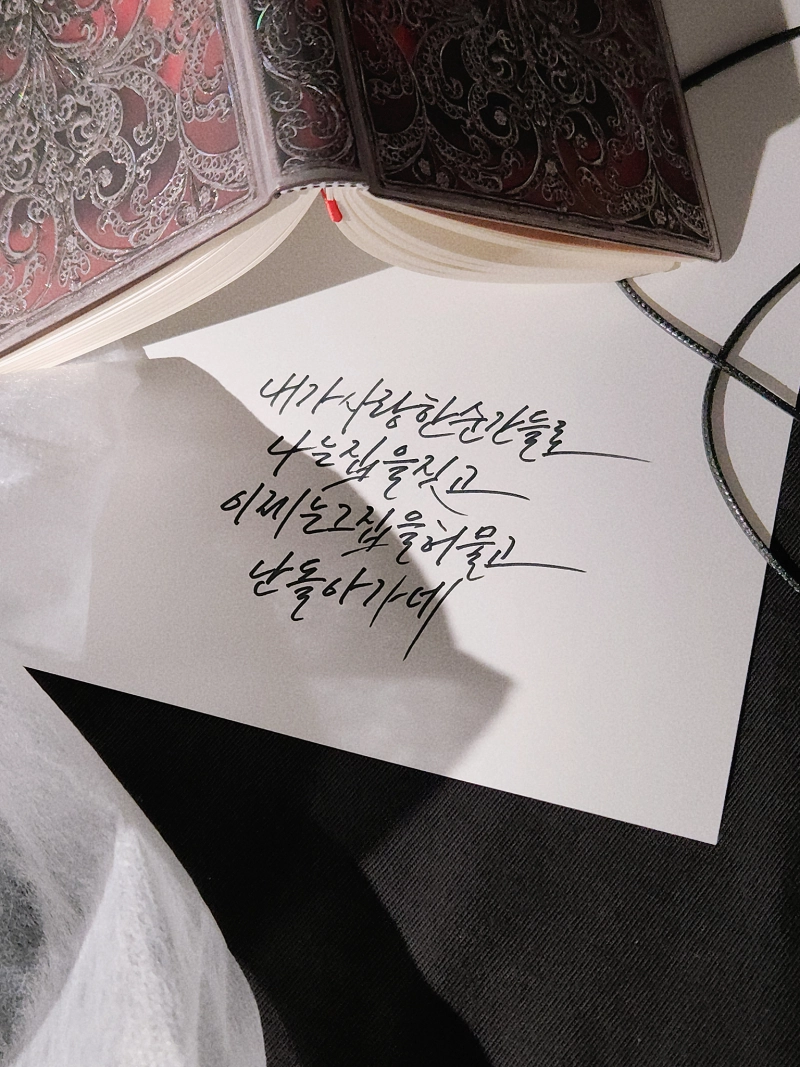 내가 사랑한 순간들로
나는 집을 짓고
이제는 그 집을 허물고
난 돌아가네